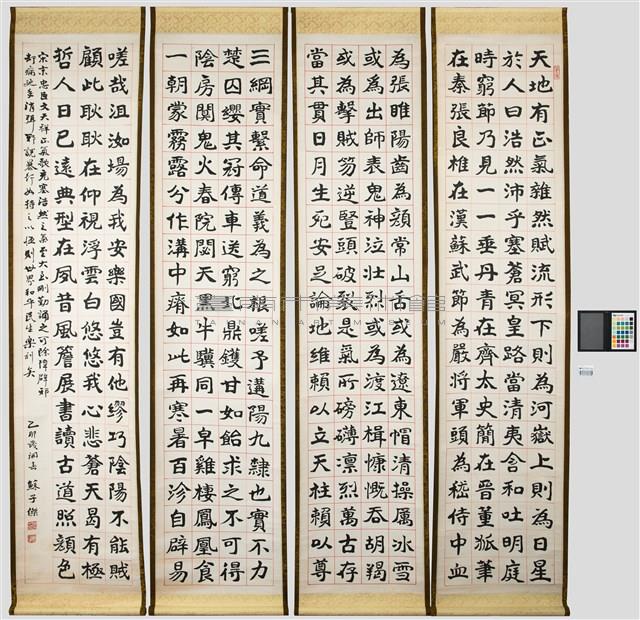 天地有正氣雜然賦流形下則為河嶽上則為日星
於人曰浩然沛乎塞蒼冥皇路當清夷含和吐明庭
時窮節乃見一一垂丹青在齊太史簡在晉董狐筆
在秦張良椎在漢蘇武節為嚴將軍頭為嵇侍中血
為張睢陽齒為顏常山舌或為遼東帽清操厲冰雪
或為出師表鬼神泣壯烈或為渡江楫慷慨吞胡羯
或為擊賊笏逆豎頭破裂是氣所磅礴凛烈萬古存
當其貫日月生死安足論地維賴以立天柱賴以尊
三綱實繫命道義為之根嗟予遘陽九隸也實不力
楚囚纓其冠傳車送窮北鼎鑊甘如飴求之不可得
陰房闃鬼火春院閟天黑牛驥同一皁雞棲鳳凰食
一朝蒙霧露分作溝中瘠如此再寒暑百沴自辟易
嗟哉沮洳場為我安樂國豈有他繆巧陰陽不能賊
顧此耿耿在仰視浮雲白悠悠我心悲蒼天曷有極
哲人日已遠典型在夙昔風簷展書讀古道照顏色
忠臣文天祥正氣歌充塞浩然之氣至大至剛勤誦之可除障辟邪
却病消弭之以恆則世界和平民生樂利矣
乙卯歲 蘇子傑
TAINAN ART MUSEUM